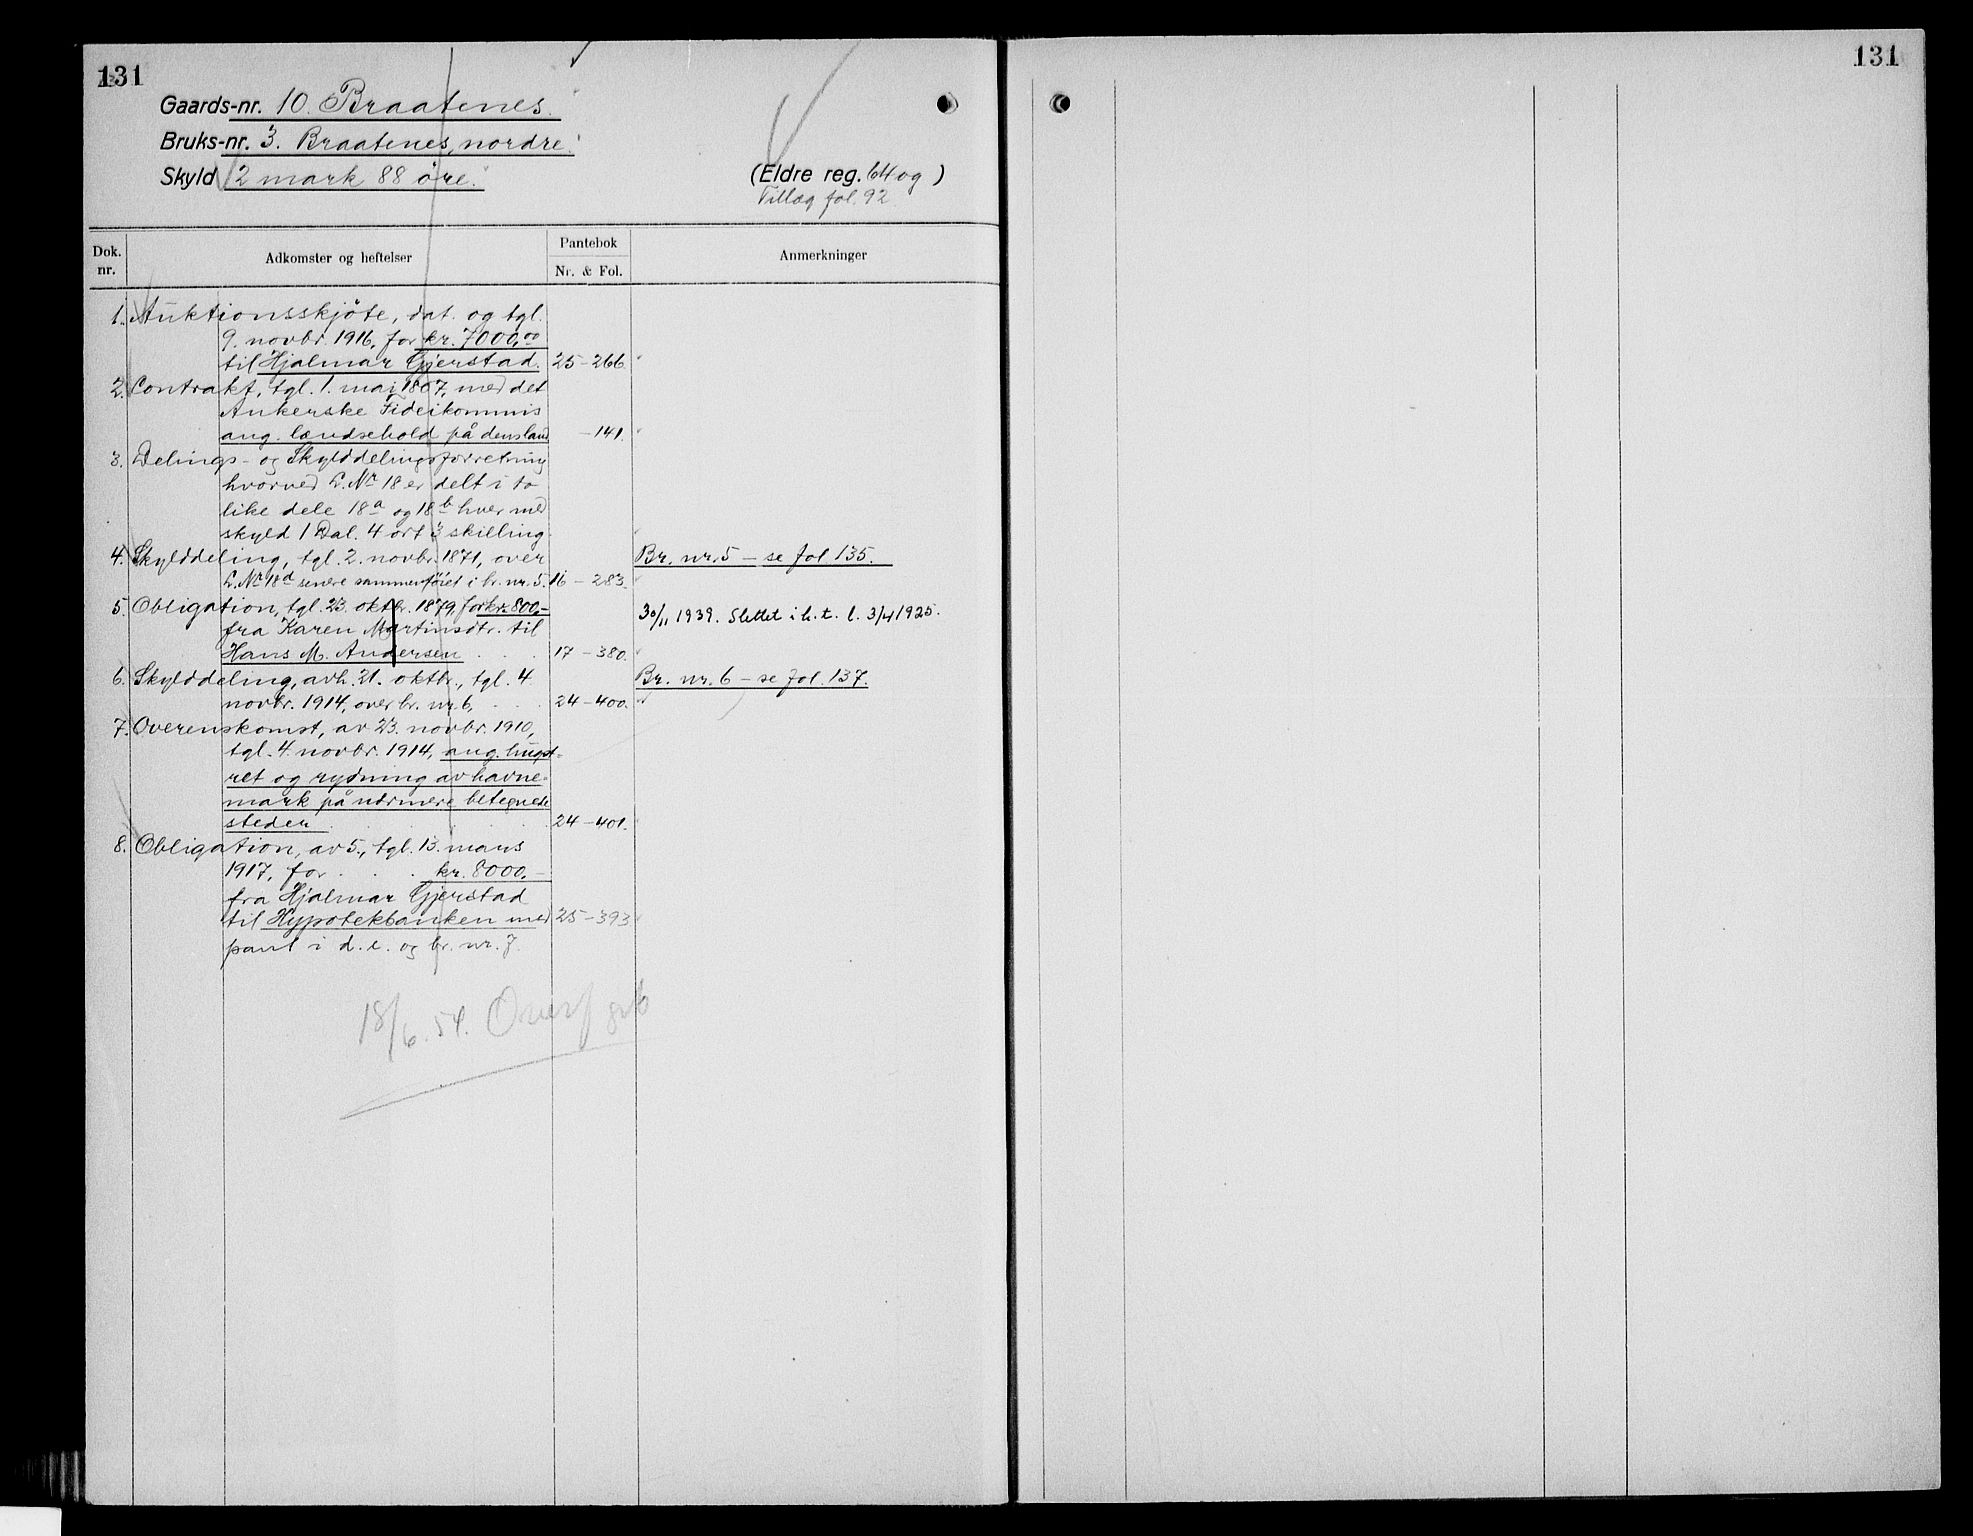 131
Gaards-nr. 10. Braatenes.
Bruks-nr. 3. Braatenes, nordre.
Skyld 2 mark 88 öre.
(Eldre reg. 64 og )
Tillæg fol. 92
Dok. nr.
Adkomster og heftelser
Pantebok
Nr. & Fol.
Anmerkninger
1. Auktionsskjöte, dat. og tgl.
9. novbr. 1916, for kr. 7000,00
til Hjalmar Gjerstad. 25-266.
2. Contrakt, tgl. 1. mai 1807, med det
Ankerske Fideikommis
ang. lændsehold på dens land -141.
3. Delings- og Skylddelingsforretning
hvorved L. Nr 18 er delt i to
like dele 18a og 18b hver med
skyld 1 Dal. 4 ort 3 skilling.
4. Skylddeling, tgl. 2. novbr. 1871, over Br. nr. 5 - se fol 135.
L. Nr 18d senere sammenföiet i br. nr. 5. 16-283.
5. Obligation, tgl. 23. oktbr. 1879, for kr. 800,- 30/11 1939. Slettet i h. t. l. 3/4 1925.
fra Karen Martinsdtr. til
Hans M. Andersen . . . 17-380.
6. Skylddeling, avh. 21. oktbr., tgl. 4. Br. nr. 6 - se fol. 137.
novbr. 1914, over br. nr. 6, . . . 24-400.
7. Overenskomst, av 23. novbr. 1910,
tgl. 4. novbr. 1914, ang. hugst-
ret og rydning av havne-
mark på nærmere betegnede
steder . . . . 24-401.
8. Obligation, av 5., tgl. 13. mars
1917, for . . . kr. 8000,-
fra Hjalmar Gjerstad
til Hypotekbanken med 25-393
pant i d. e. og br. nr. 7.
18/6. 54. Overf
131